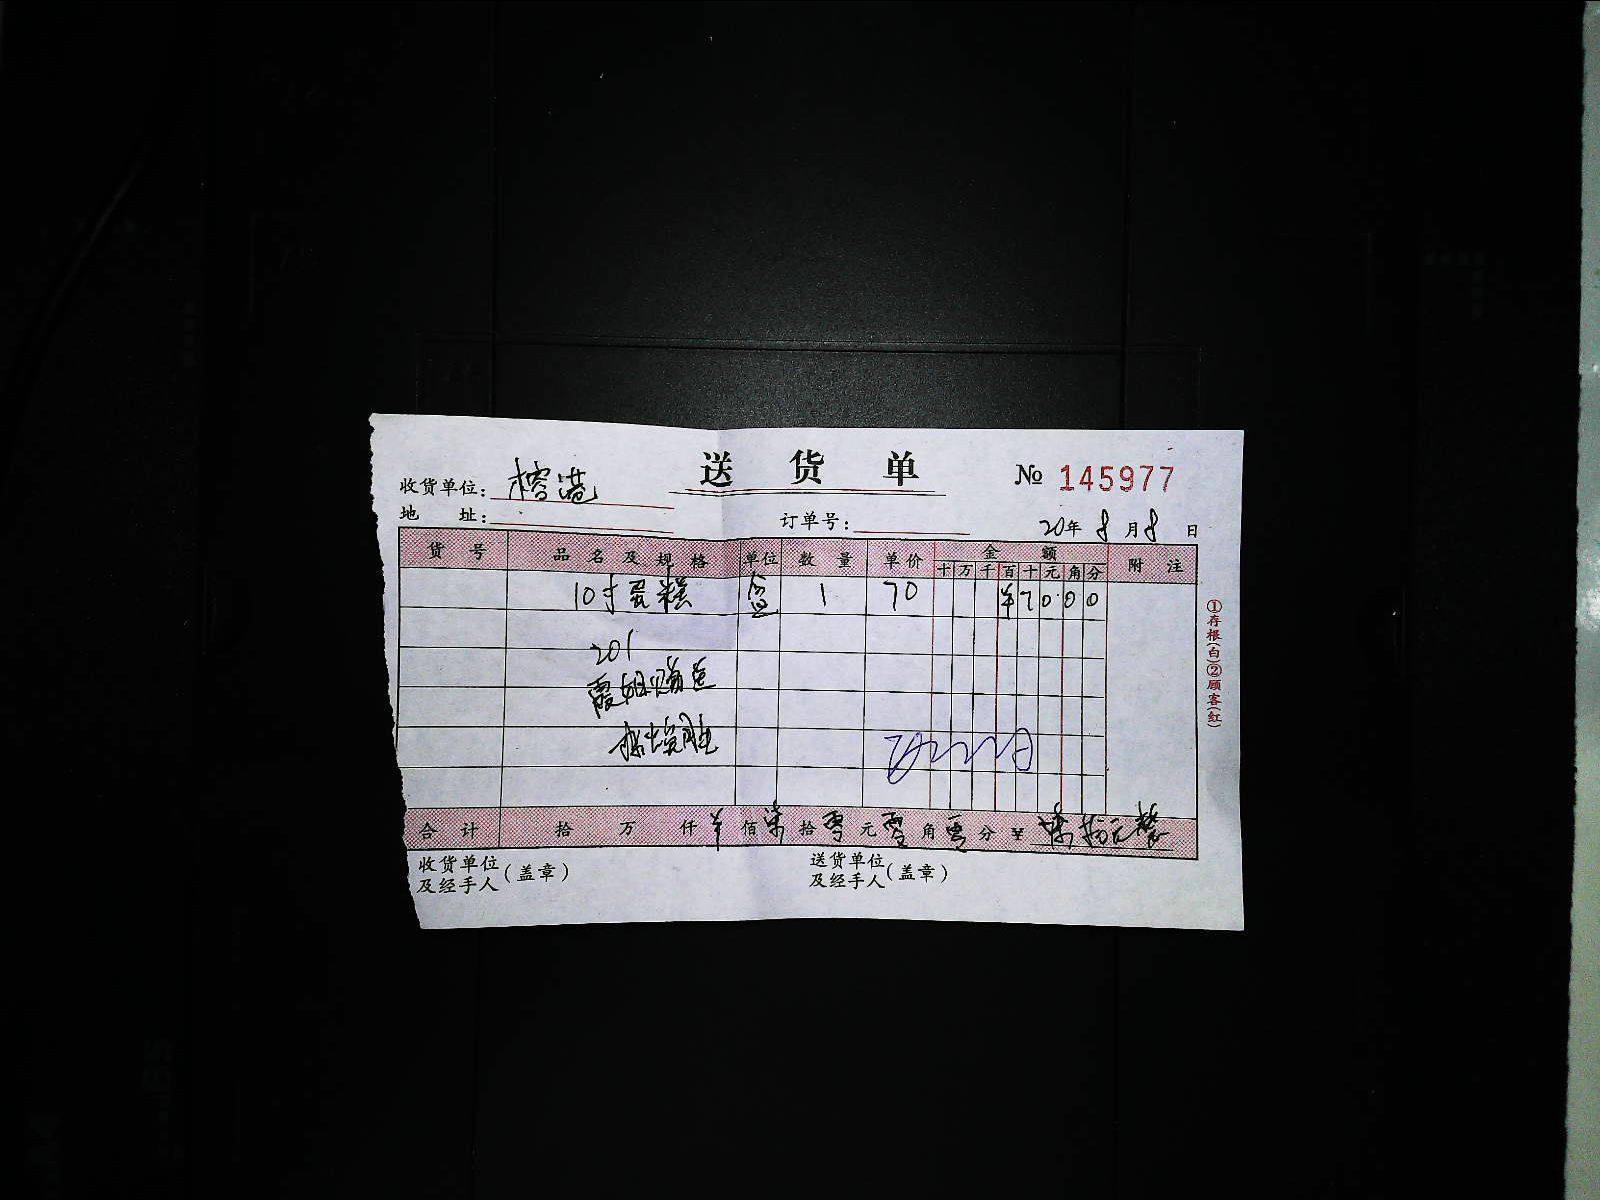 送货单
№ 145977
收货单位: 榕港
地 址: 订单号: 20年 8月8日
货号 品名及规格 单位 数量 单价 金额 附注
十 万 千 百 十 元 角 分
10寸蛋糕 盒 1 70 ¥70.00
201
霞姐赠送
合计 拾 万 仟 ¥ 佰 柒 拾 零 元 零 角 零 分 ¥ 柒拾元整
收货单位及经手人(盖章) 送货单位及经手人(盖章)
①存根(白)②顾客(红)